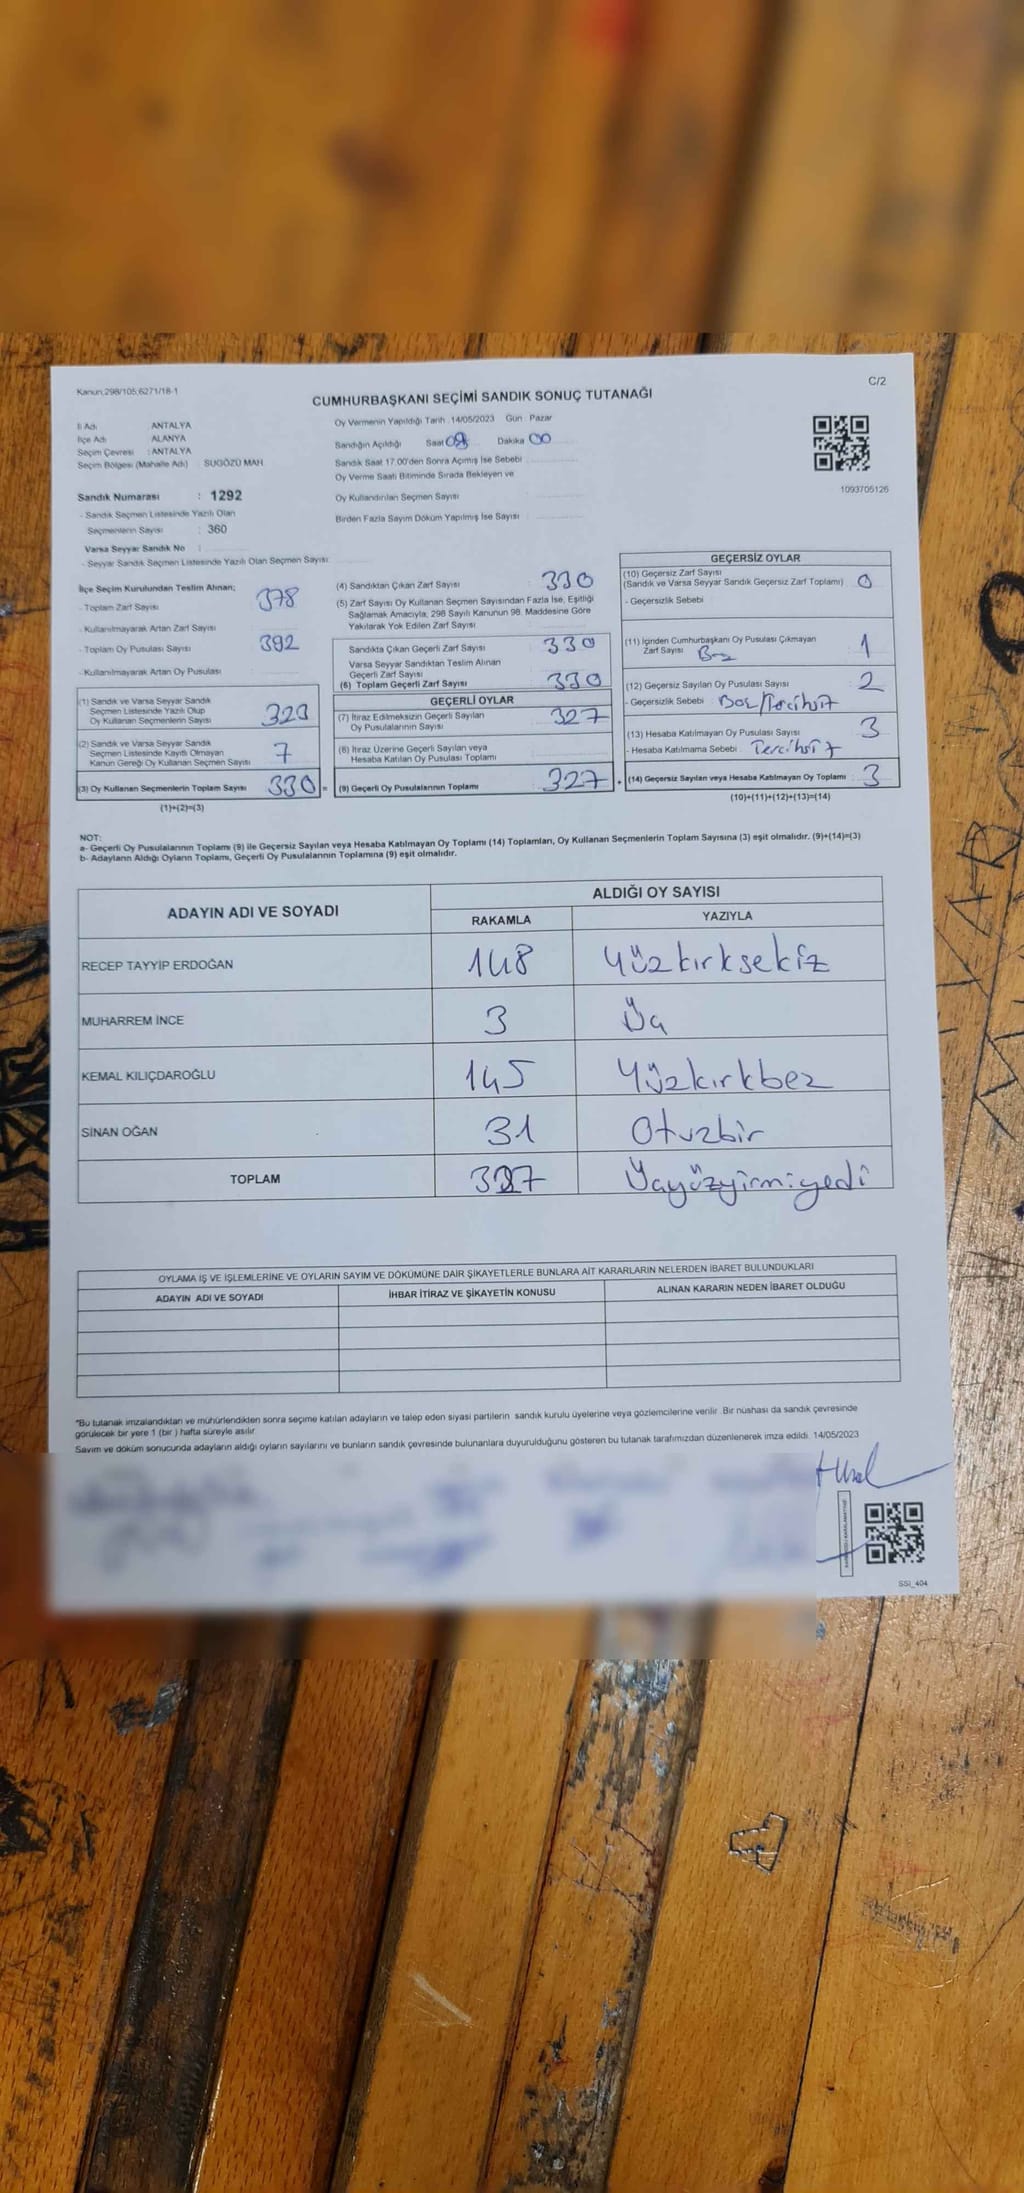 Kanun:298/105;6271/18-1
C/2
CUMHURBAŞKANI SEÇİMİ SANDIK SONUÇ TUTANAĞI
İl Adı ANTALYA
İlçe Adı ALANYA
Seçim Çevresi : ANTALYA
Seçim Bölgesi (Mahalle Adı) : SUGÖZÜ MAH
Sandık Numarası : 1292
- Sandık Seçmen Listesinde Yazılı Olan
Seçmenlerin Sayısı : 360
Varsa Seyyar Sandık No :
- Seyyar Sandık Seçmen Listesinde Yazılı Olan Seçmen Sayısı
Oy Vermenin Yapıldığı Tarih : 14/05/2023 Gün : Pazar
Sandığın Açıldığı Saat 08 Dakika 00
Sandık Saat 17.00'den Sonra Açımış İse Sebebi
Oy Verme Saati Bitiminde Sırada Bekleyen ve
Oy Kullandırılan Seçmen Sayısı
Birden Fazla Sayım Döküm Yapılmış İse Sayısı
1093705126
İlçe Seçim Kurulundan Teslim Alınan;
- Toplam Zarf Sayısı 378
- Kullanılmayarak Artan Zarf Sayısı
- Toplam Oy Pusulası Sayısı 392
- Kullanılmayarak Artan Oy Pusulası
(1) Sandık ve Varsa Seyyar Sandık
Seçmen Listesinde Yazılı Olup
Oy Kullanan Seçmenlerin Sayısı 323
(2) Sandık ve Varsa Seyyar Sandık
Seçmen Listesinde Kayıtlı Olmayan
Kanun Gereği Oy Kullanan Seçmen Sayısı 7
(3) Oy Kullanan Seçmenlerin Toplam Sayısı 330 =
(1)+(2)=(3)
(4) Sandıktan Çıkan Zarf Sayısı 330
(5) Zarf Sayısı Oy Kullanan Seçmen Sayısından Fazla İse, Eşitliği
Sağlamak Amacıyla, 298 Sayılı Kanunun 98. Maddesine Göre
Yakılarak Yok Edilen Zarf Sayısı
Sandıkta Çıkan Geçerli Zarf Sayısı 330
Varsa Seyyar Sandıktan Teslim Alınan
Geçerli Zarf Sayısı
(6) Toplam Geçerli Zarf Sayısı 330
GEÇERLİ OYLAR
(7) İtiraz Edilmeksizin Geçerli Sayılan
Oy Pusulalarının Sayısı 327
(8) İtiraz Üzerine Geçerli Sayılan veya
Hesaba Katılan Oy Pusulası Toplamı
(9) Geçerli Oy Pusulalarının Toplamı 327 +
GEÇERSİZ OYLAR
(10) Geçersiz Zarf Sayısı
(Sandık ve Varsa Seyyar Sandık Geçersiz Zarf Toplamı) 0
- Geçersizlik Sebebi
(11) İçinden Cumhurbaşkanı Oy Pusulası Çıkmayan
Zarf Sayısı Boş 1
(12) Geçersiz Sayılan Oy Pusulası Sayısı 2
- Geçersizlik Sebebi : Boş/Tercihsiz
(13) Hesaba Katılmayan Oy Pusulası Sayısı 3
- Hesaba Katılmama Sebebi Tercihsiz
(14) Geçersiz Sayılan veya Hesaba Katılmayan Oy Toplamı 3
(10)+(11)+(12)+(13)=(14)
NOT:
a- Geçerli Oy Pusulalarının Toplamı (9) ile Geçersiz Sayılan veya Hesaba Katılmayan Oy Toplamı (14) Toplamları, Oy Kullanan Seçmenlerin Toplam Sayısına (3) eşit olmalıdır. (9)+(14)=(3)
b- Adayların Aldığı Oyların Toplamı, Geçerli Oy Pusulalarının Toplamına (9) eşit olmalıdır.
ADAYIN ADI VE SOYADI
ALDIĞI OY SAYISI
RAKAMLA YAZIYLA
RECEP TAYYİP ERDOĞAN 148 Yüzkırksekiz
MUHARREM İNCE 3 Üç
KEMAL KILIÇDAROĞLU 145 Yüzkırkbeş
SİNAN OĞAN 31 Otuzbir
TOPLAM 327 Üçyüzyirmiyedi
OYLAMA İŞ VE İŞLEMLERİNE VE OYLARIN SAYIM VE DÖKÜMÜNE DAİR ŞİKAYETLERLE BUNLARA AİT KARARLARIN NELERDEN İBARET BULUNDUKLARI
ADAYIN ADI VE SOYADI İHBAR İTİRAZ VE ŞİKAYETİN KONUSU ALINAN KARARIN NEDEN İBARET OLDUĞU
*Bu tutanak imzalandıktan ve mühürlendikten sonra seçime katılan adayların ve talep eden siyasi partilerin sandık kurulu üyelerine veya gözlemcilerine verilir. Bir nüshası da sandık çevresinde
görülecek bir yere 1 (bir) hafta süreyle asılır.
Sayım ve döküm sonucunda adayların aldığı oyların sayılarını ve bunların sandık çevresinde bulunanlara duyurulduğunu gösteren bu tutanak tarafımızdan düzenlenerek imza edildi. 14/05/2023
SSI_404